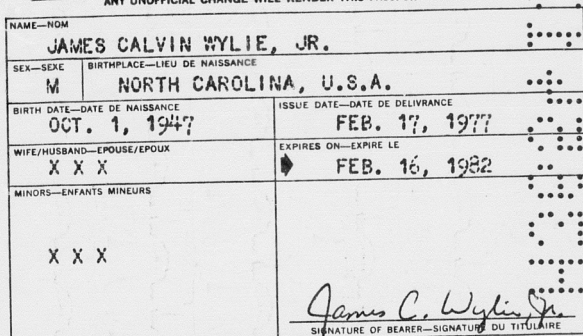 ANY UNOFFICIAL CHANGE WILL RENDER THIS
NAME—NOM
JAMES CALVIN WYLIE, JR.
SEX—SEXE BIRTHPLACE—LIEU DE NAISSANCE
M NORTH CAROLINA, U.S.A.
BIRTH DATE—DATE DE NAISSANCE ISSUE DATE—DATE DE DELIVRANCE
OCT. 1, 1947 FEB. 17, 1977
WIFE/HUSBAND—EPOUSE/EPOUX EXPIRES ON—EXPIRE LE
X X X FEB. 16, 1982
MINORS—ENFANTS MINEURS
X X X
James C. Wylie, Jr.
SIGNATURE OF BEARER—SIGNATURE DU TITULAIRE